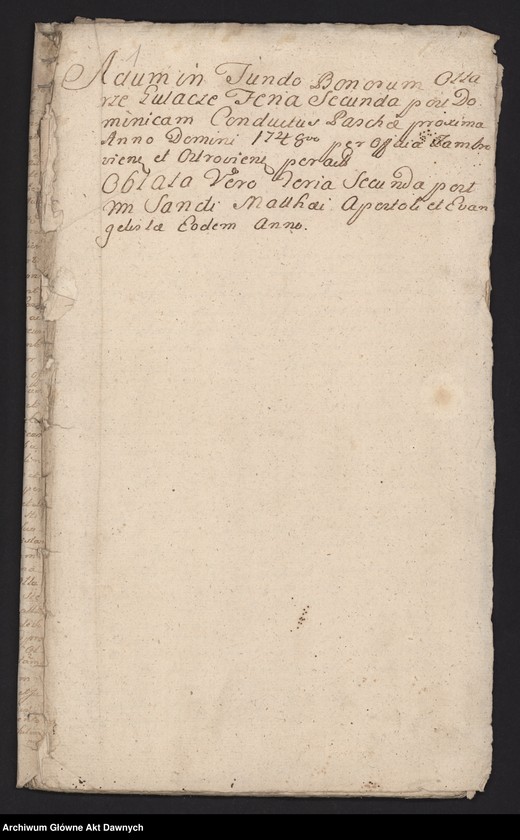 Actum in Fundo Bonorum Osta
rze Pulacze Feria Secunda post Do
minicam Conductus Paschæ proxima
Anno Domini 1748vo per Offcia Zambro
viens et Ostroviens peract
Oblata Vero Feria Secunda post
tm Sancti Matthæi Apostoli et Evan
gelistæ Eodem Anno.
Archiwum Główne Akt Dawnych